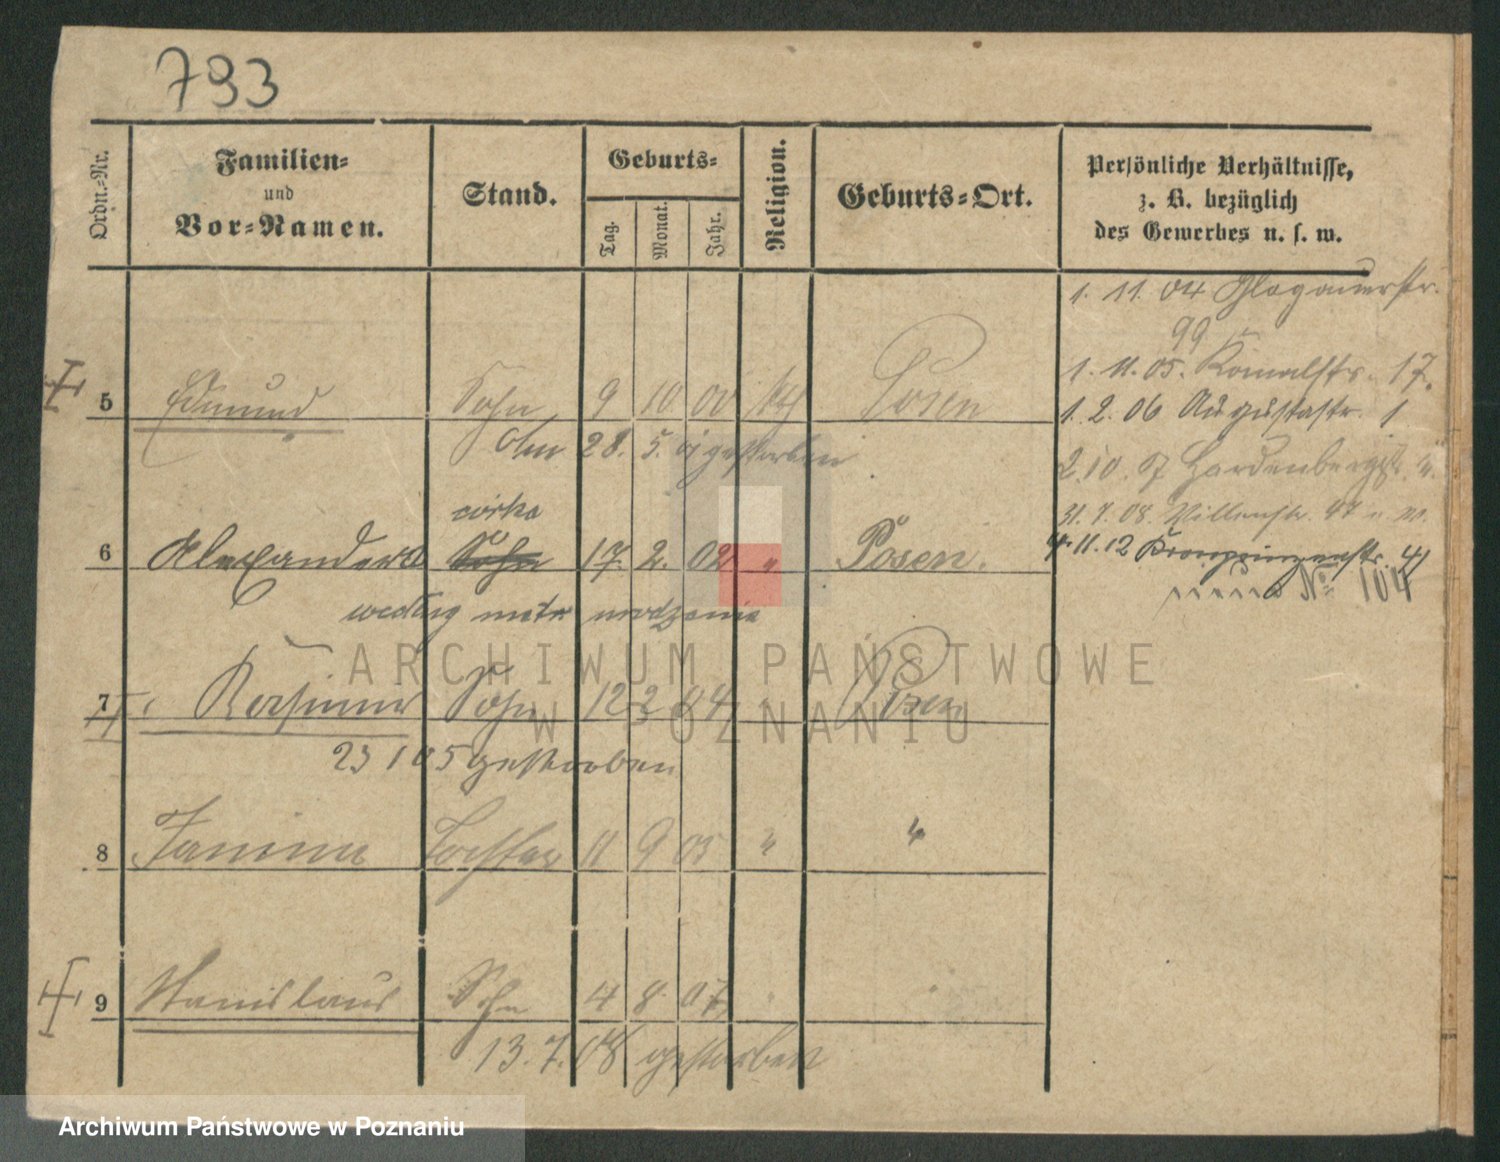 793
Ordn.-Nr.
Familien-
und
Vor-Namen.
Stand.
Geburts-
Tag.
Monat.
Jahr.
Religion.
Geburts-Ort.
Persönliche Verhältnisse,
z. B. bezüglich
des Gewerbes u. s. w.
1. 11. 04 Glogauerstr.
99
1. 11. 05. 17.
1. 2. 06 Augustastr. 1
5 Edmund Sohn 9 10 00 kath Posen
28. 5. 01 gestorben
2. 10. 07 Hardenbergstr.
31. 7. 08.
córka
6 Alexandera Sohn 17. 2. 02 " Posen.
4. 11. 12 Kronprinzenstr. 41
No 104
według metr urodzenia
7 Kasimir Sohn 12 2 04 " Posen
23 1 05 gestorben
8 Janina Tochter 11 9 05 " "
9 Stanislaus Sohn 4 8. 07 " "
13. 7. 08 gestorben
ARCHIWUM PAŃSTWOWE
W POZNANIU
Archiwum Państwowe w Poznaniu